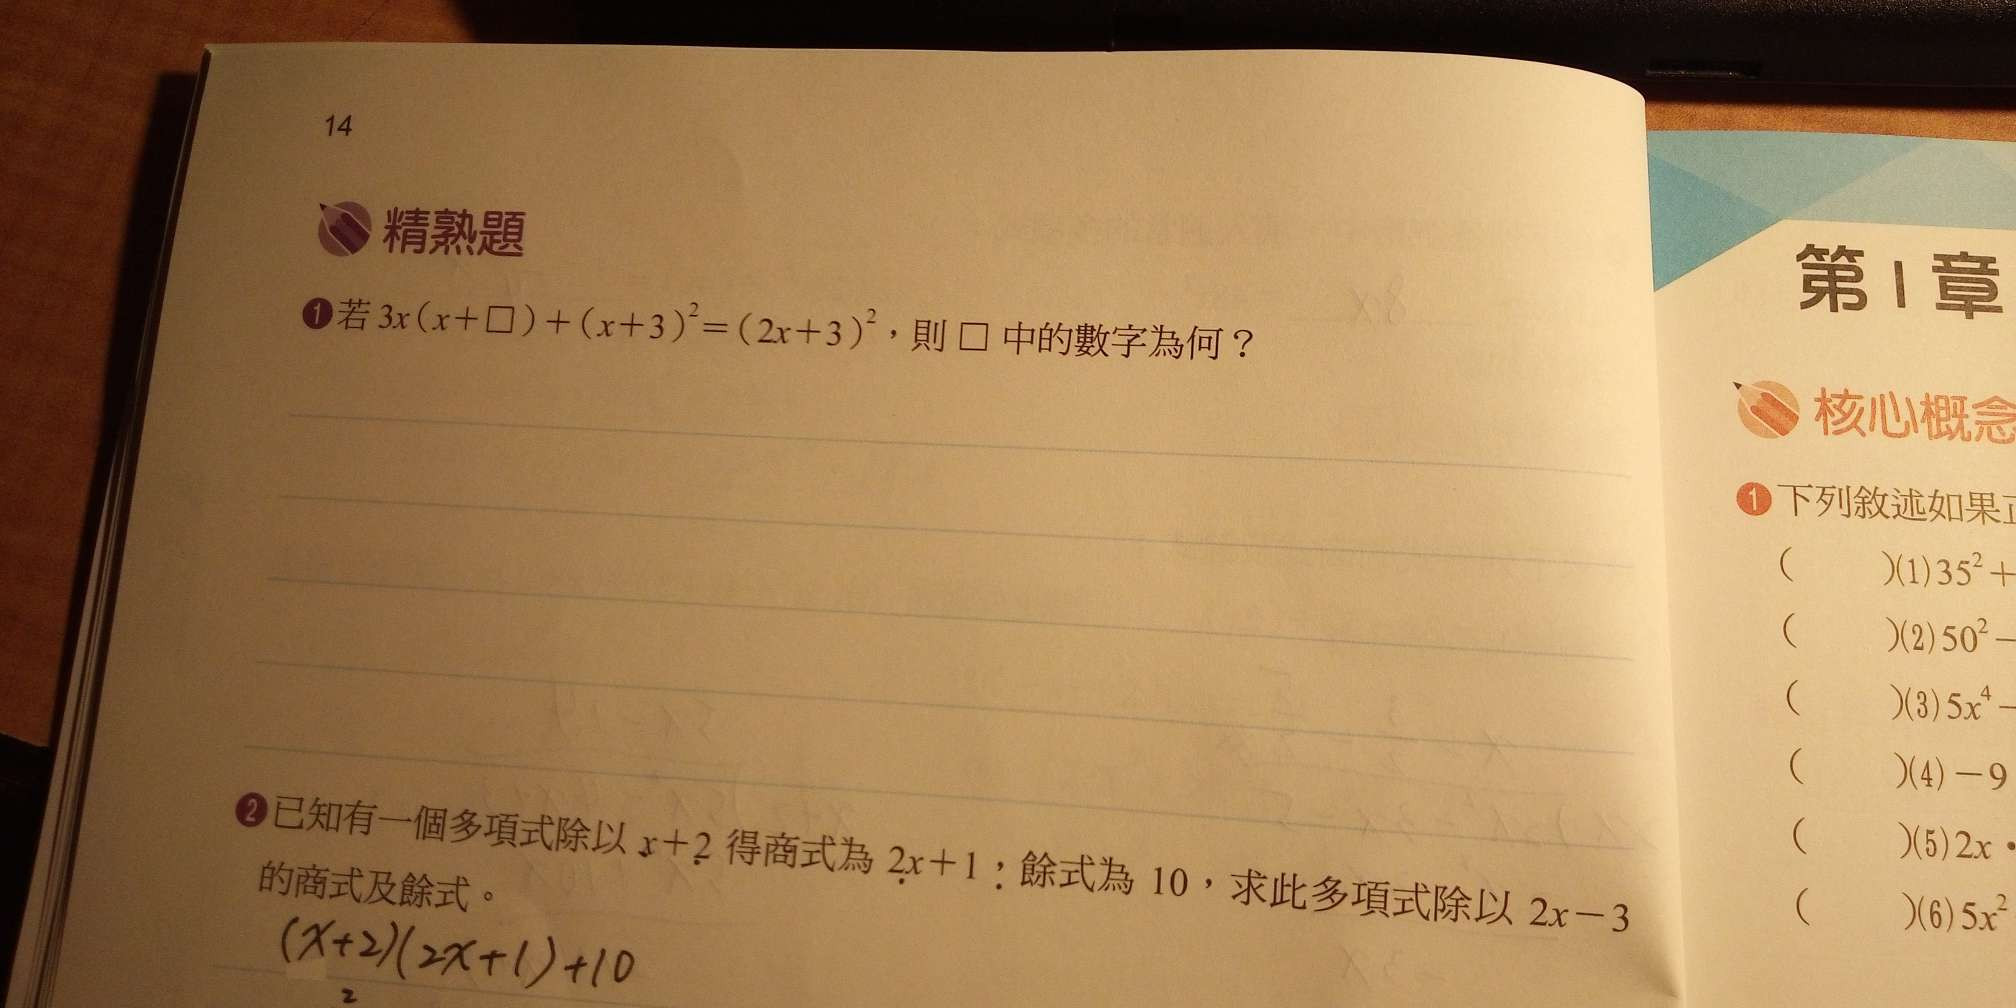 14
精熟題
❶若 3x(x+□)+(x+3)²=(2x+3)²，則 □ 中的數字為何？
❷已知有一個多項式除以 x+2 得商式為 2x+1，餘式為 10，求此多項式除以 2x−3
的商式及餘式。
(x+2)(2x+1)+10
2
第1章
核心概念
❶下列敘述如果
( )(1)35²+
( )(2)50²−
( )(3)5x⁴−
( )(4)−9
( )(5)2x·
( )(6)5x²